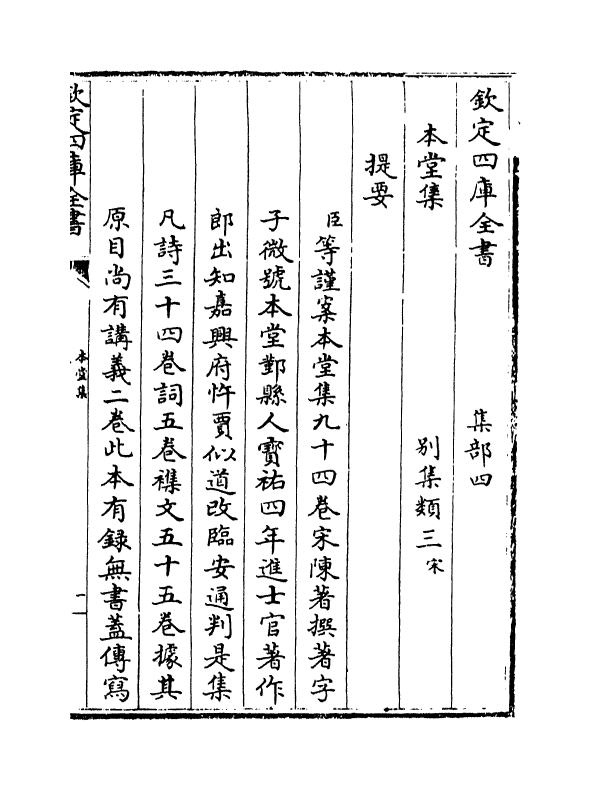 欽定四庫全書 集部四
本堂集 別集類三宋
提要
臣等謹案本堂集九十四卷宋陳著撰著字
子微號本堂鄞縣人寶祐四年進士官著作
郎出知嘉興府忤賈似道改臨安通判是集
凡詩三十四卷詞五卷襍文五十五卷據其
原目尚有講義二卷此本有録無書蓋傳寫
欽定四庫全書
本堂集
一